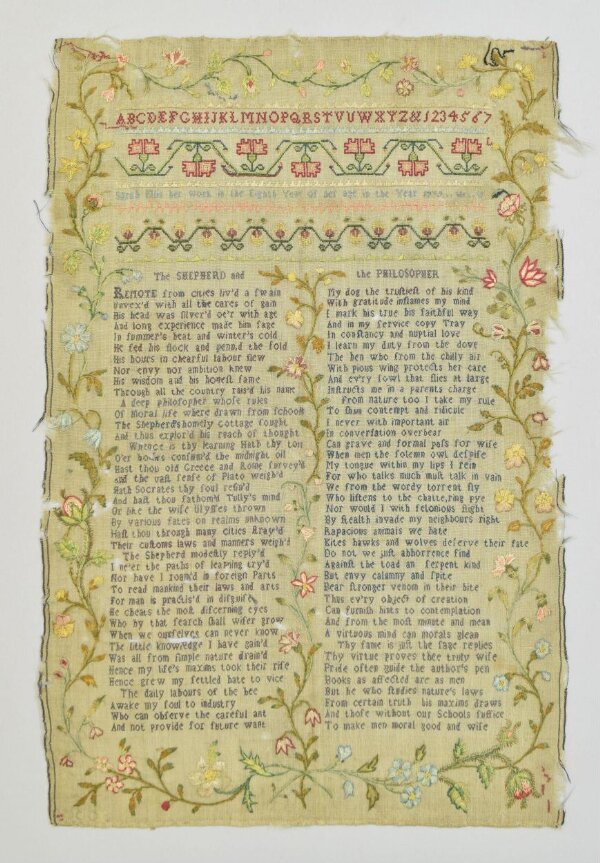 ABCDEFGHIJKLMNOPQRSTVUWXYZ&1234567
Sarah Ellis her work in the Eighth Year of her age in the Year
The SHEPHERD and
REMOTE from cities liv'd a ſwain
Unvex'd with all the cares of gain
His head was ſilver'd oe'r with age
And long experience made him ſage
In ſummer's heat and winter's cold
He fed his flock and penn'd the fold
His hours in chearful labour flew
Nor envy nor ambition knew
His wisdom and his honeſt fame
Through all the country rais'd his name
A deep philoſopher whoſe rules
Of Moral life where drawn from ſchools
The Shepherd's homely Cottage ſought
And thus explor'd his reach of thought
Whence is thy learning Hath thy toil
O'er books conſum'd the midnight oil
Haſt thou old Greece and Rome ſurvey'd
And the vaſt ſenſe of Plato weigh'd
Hath Socrates thy ſoul refin'd
And haſt thou fathom'd Tully's mind
Or like the wiſe Ulyſſes thrown
By various fates on realms unknown
Haſt thou through many cities ſtray'd
Their cuſtoms laws and manners weigh'd
The Shepherd modeſtly reply'd
I ne'er the paths of learning try'd
Nor have I roam'd in foreign Parts
To read mankind their laws and arts
For man is practis'd in diſguiſe
He cheats the moſt diſcerning eyes
Who by that ſearch ſhall wiſer grow
When we ourſelves can never know
The little knowledge I have gain'd
Was all from ſimple nature drain'd
Hence my life's maxims took their riſe
Hence grew my ſettled hate to vice
The daily labours of the bee
Awake my ſoul to induſtry
Who can obſerve the careful ant
And not provide for future want
the PHILOSOPHER
My dog the truſtieſt of his kind
With gratitude inflames my mind
I mark his true his faithful way
And in my ſervice copy Tray
In conſtancy and nuptial love
I learn my duty from the dove
The hen who from the chilly air
With pious wing protects her care
And ev'ry fowl that flies at large
Inſtructs me in a parents charge
From nature too I take my rule
To ſhun contempt and ridicule
I never with important air
In converſation overbear
Can grave and formal paſs for wiſe
When men the ſolemn owl deſpiſe
My tongue within my lips I rein
For who talks much muſt talk in vain
We from the wordy torrent fly
Who liſtens to the chatt'ring pye
Nor would I with felonious flight
By ſtealth invade my neighbours right
Rapacious animals we hate
Kites hawks and wolves deſerve their fate
Do not we juſt abhorrence find
Againſt the toad an ſerpent kind
But envy calumny and ſpite
Bear ſtronger venom in their bite
Thus ev'ry object of creation
Can furniſh hints to contemplation
And from the moſt minute and mean
A virtuous mind can morals glean
Thy fame is juſt the ſage replies
Thy virtue proves thee truly wiſe
Pride often guide the author's pen
Books as affected are as men
But he who ſtudies nature's laws
From certain truth his maxims draws
And thoſe without our Schools ſuffice
To make men moral good and wiſe